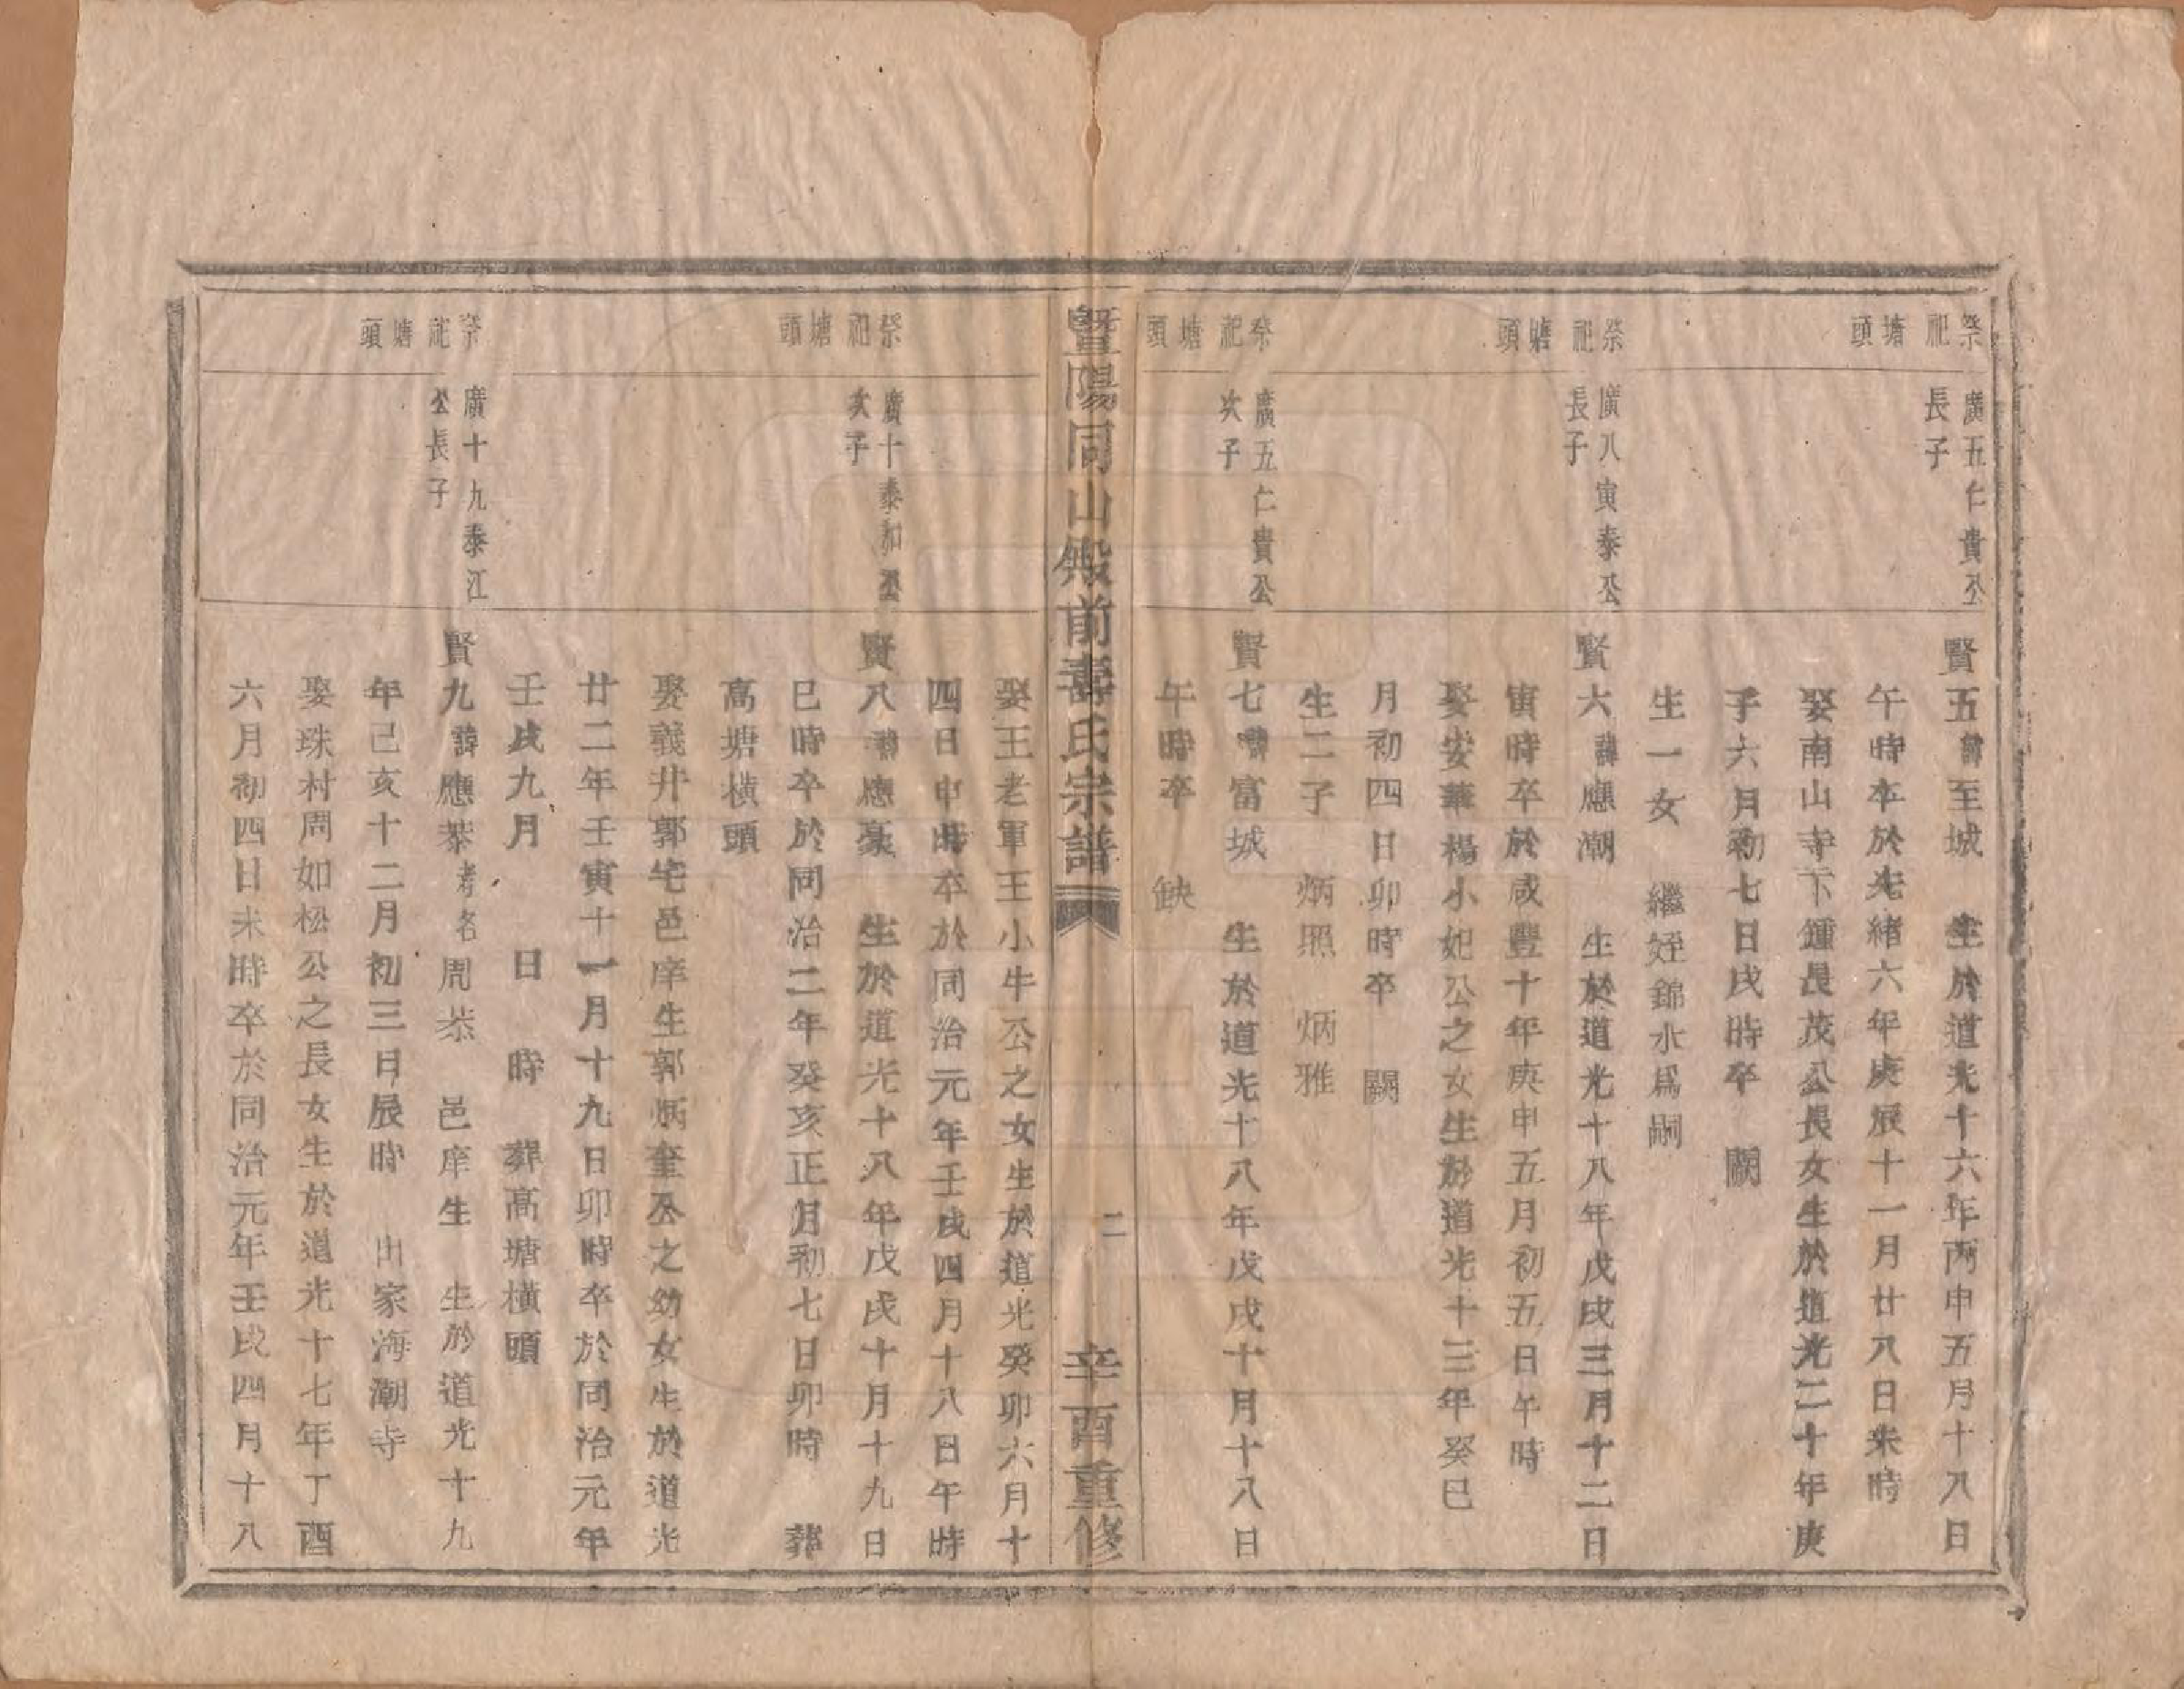 祭祀塘頭
廣五仁貴公
長子
賢五諱至城 生於道光十六年丙申五月十八日
午時卒於光緒六年庚辰十一月廿八日未時
娶南山寺下鍾長茂公長女生於道光二十年庚
子六月初七日戌時卒 闕
生一女 繼姪錦水爲嗣
祭祀塘頭
廣八寅泰公
長子
賢六諱應潮 生於道光十八年戊戌三月十二日
寅時卒於咸豐十年庚申五月初五日午時
娶安華楊小妃公之女生於道光十三年癸巳
月初四日卯時卒 闕
生二子 炳照 炳雅
祭祀塘頭
廣五仁貴公
次子
賢七諱富城 生於道光十八年戊戌十月十八日
午時卒 缺
暨陽同山殿前壽氏宗譜
二
辛酉重修
娶王老軍王小牛公之女生於道光癸卯六月十
四日申時卒於同治元年壬戌四月十八日午時
祭祀塘頭
廣十泰和公
次子
賢八諱應豪 生於道光十八年戊戌十月十九日
巳時卒於同治二年癸亥正月初七日卯時 葬
高塘橫頭
娶義井郭宅邑庠生郭炳奎公之幼女生於道光
廿二年壬寅十一月十九日卯時卒於同治元年
壬戌九月 日 時 葬高塘橫頭
祭祀塘頭
廣十九泰江
公長子
賢九諱應恭考名周恭 邑庠生 生於道光十九
年己亥十二月初三日辰時 出家海潮寺
娶珠村周如松公之長女生於道光十七年丁酉
六月初四日未時卒於同治元年壬戌四月十八